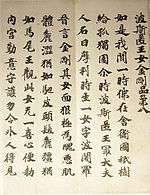 波斯匿王女金剛品第八
如是我聞一時佛在舍衛國祇樹
給孤獨園尒時波斯匿王冣大夫
人名曰摩利時生一女字波闍羅
晉言金剛其女面貌極為醜惡肌
體麁澁猶如駝皮頭髮麁強猶
如馬尾王觀此女无一喜心便勅
內宮勤意守護勿令外人得見